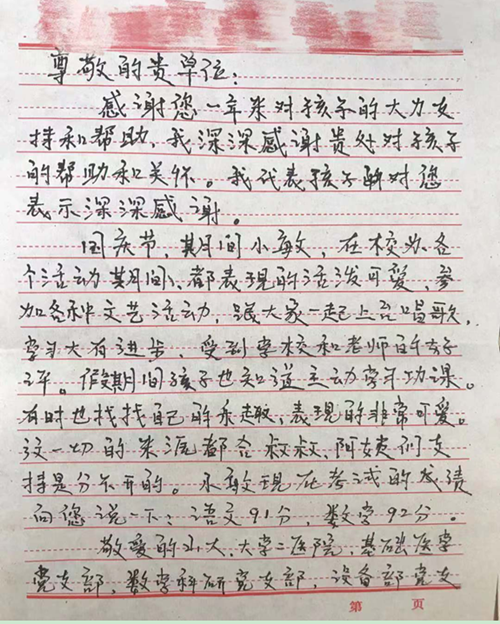 尊敬的贵单位：
感谢您一年来对孩子的大力支
持和帮助，我深深感谢贵处对孩子
的帮助和关怀。我代表孩子对您
表示深深感谢。
国庆节，期间小敏，在校办各
个活动期间，都表现的活泼可爱，参
加各种文艺活动，跟大家一起上台唱歌，
学习大有进步，受到学校和老师的好
评。假期间孩子也知道主动学习功课。
有时也找找自己的乐趣，表现的非常可爱。
这一切的来源都合叔叔，阿姨们支
持是分不开的。小敏现在考试的成绩
向您说一下：语文91分，数学92分。
敬爱的山大，大学二医院，基础医学
党支部，数学科研党支部，设备部党支
第 页